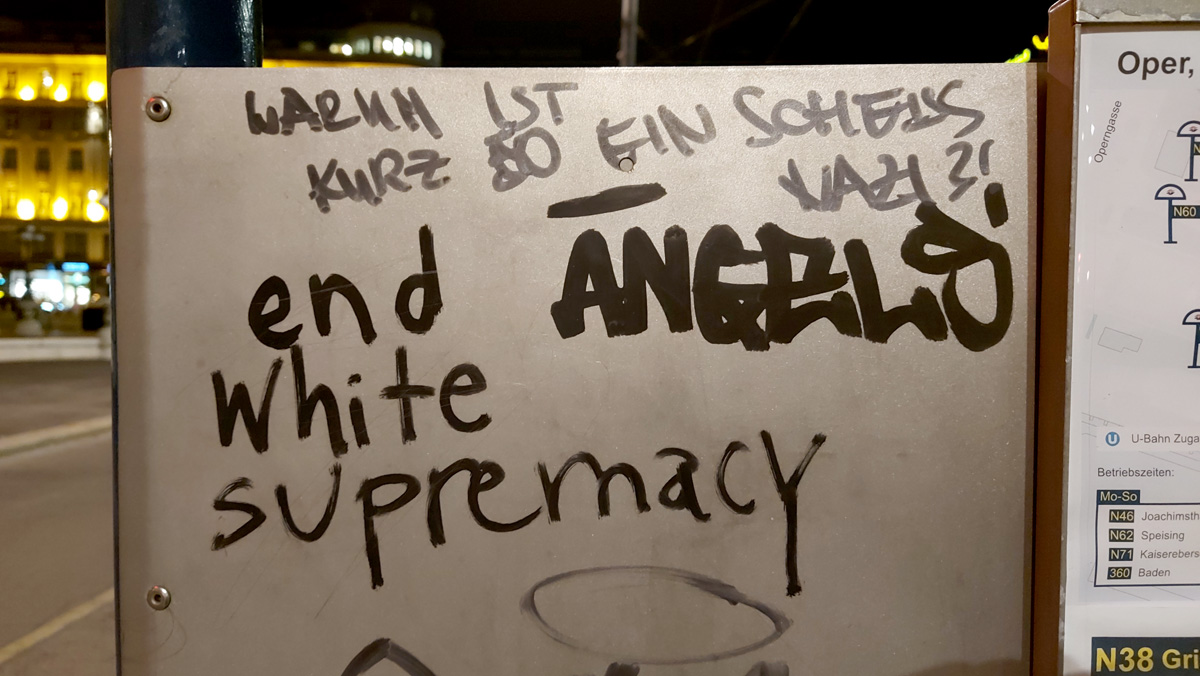 WARUM IST
KURZ SO EIN SCHEISS
NAZI?!
ANGELO
end
white
supremacy
Oper,
Operngasse
N60
U-Bahn Zuga
Betriebszeiten:
Mo-So
N46 Joachimsth
N62 Speising
N71 Kaiserebers
360 Baden
N38 Gri